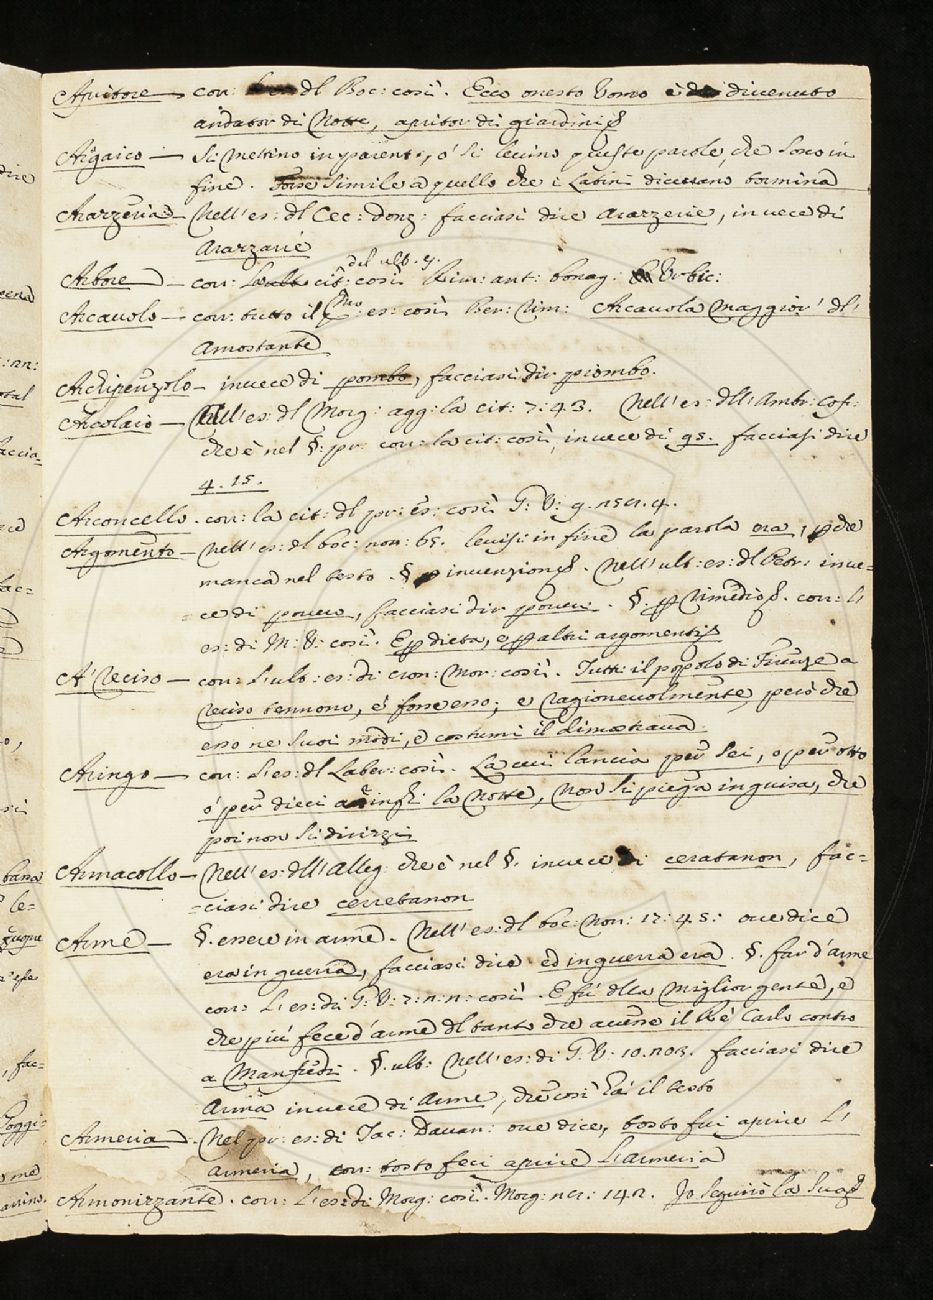 Apritore — corr: dl Boc: così. Ecco questo buono è divenuto
andator di Notte, apritor di giardini
Argaico — Si mettino in parent., ó si levino queste parole, che sono in
fine. Forse simile a quello che i Latini dicevano
Arazzeria — Nell'es: dl Cec: Donz: facciasi dire Arazzerie, invece di
Arazzarie
del ult. 4.
Arbore — corr: cit: così Rim: ant: bonag: Urbic:
Arcavolo — corr: tutto il p.mo es: così Ber: Rim: Arcavola maggior' dl'
Amostante
Archipenzolo — invece di pombo, facciasi dir piombo.
Arcolaio — Nell'es: dl Morg: agg: la cit: 7: 43. Nell'es: dll'Ambr: Cof:
che è nel §. pr: corr: la cit: così, invece di 95. facciasi dire
4. 15.
Arconcello. corr: la cit: dl pr: es: così G: V: 9.
Argomento — Nell'es: dl boc: nov: 65. levisi in fine la parola ora, che
manca nel testo. § invenzione. Nell'ult: es: dl Petr: inve=
=ce di povero, facciasi dir poveri. §. Rimedio. corr: l'
es: di M: V: così. E dieta, e altri argomenti
A' reciso — corr: l'ult: es: di Cron: Mor: così. Tutti il popolo di Firenze a
reciso tennono, e' fosse esso; e ragionevolmente, però che
esso ne suoi modi, e costumi il dimostrava.
Aringo — corr: l'es: dl Laber: così. La cui lancia per sei, o per otto
ó per dieci aringhi la Notte, non si piega in guisa, che
poi non si dirizzi
Armacollo — Nell'es: dll'Alleg: che è nel §. invece di cerabanon, fac=
=ciasi dire cerrebanon
Arme — §. essere in arme. Nell'es: dl boc: Nov: 17: 45: ove dice
era in guerra, facciasi dire ed in guerra era. §. far d'arme
corr: l'es: di G: V: 7: così. E fù dlla miglior gente, e
che più fece d'arme dl tanto che avesse il Rè Carlo contro
a Manfredi. §. ult: Nell'es: di G: V: 10. facciasi dire
Arma invece di Arme, che così hà il testo
Armeria. Nel pr: es: di Tac: Davan: ove dice, tosto fui aprire l'
armeria, corr: tosto feci aprire l'armeria
Armonizzante. corr: l'es: di Morg: così. Morg: Io seguirò la sua